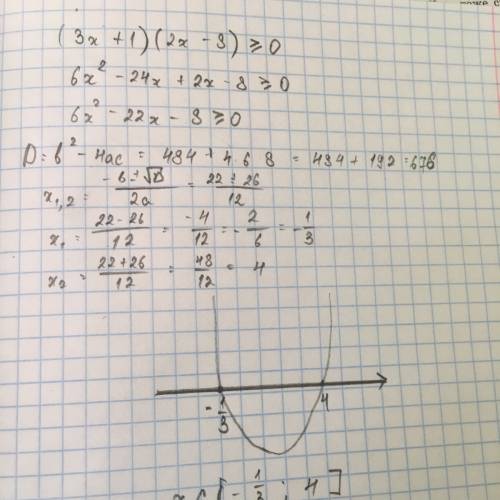 (3x + 1)(2x - 8) ⩾ 0
6x² - 24x + 2x - 8 ⩾ 0
6x² - 22x - 8 ⩾ 0
D = b² - 4ac = 484 + 4·6·8 = 484 + 192 = 676
x₁,₂ = (-b ± √D)/2a = (22 ± 26)/12
x₁ = (22 - 26)/12 = -4/12 = -2/6 = -1/3
x₂ = (22 + 26)/12 = 48/12 = 4
-1/3 4
x ∈ [-1/3 ; 4]